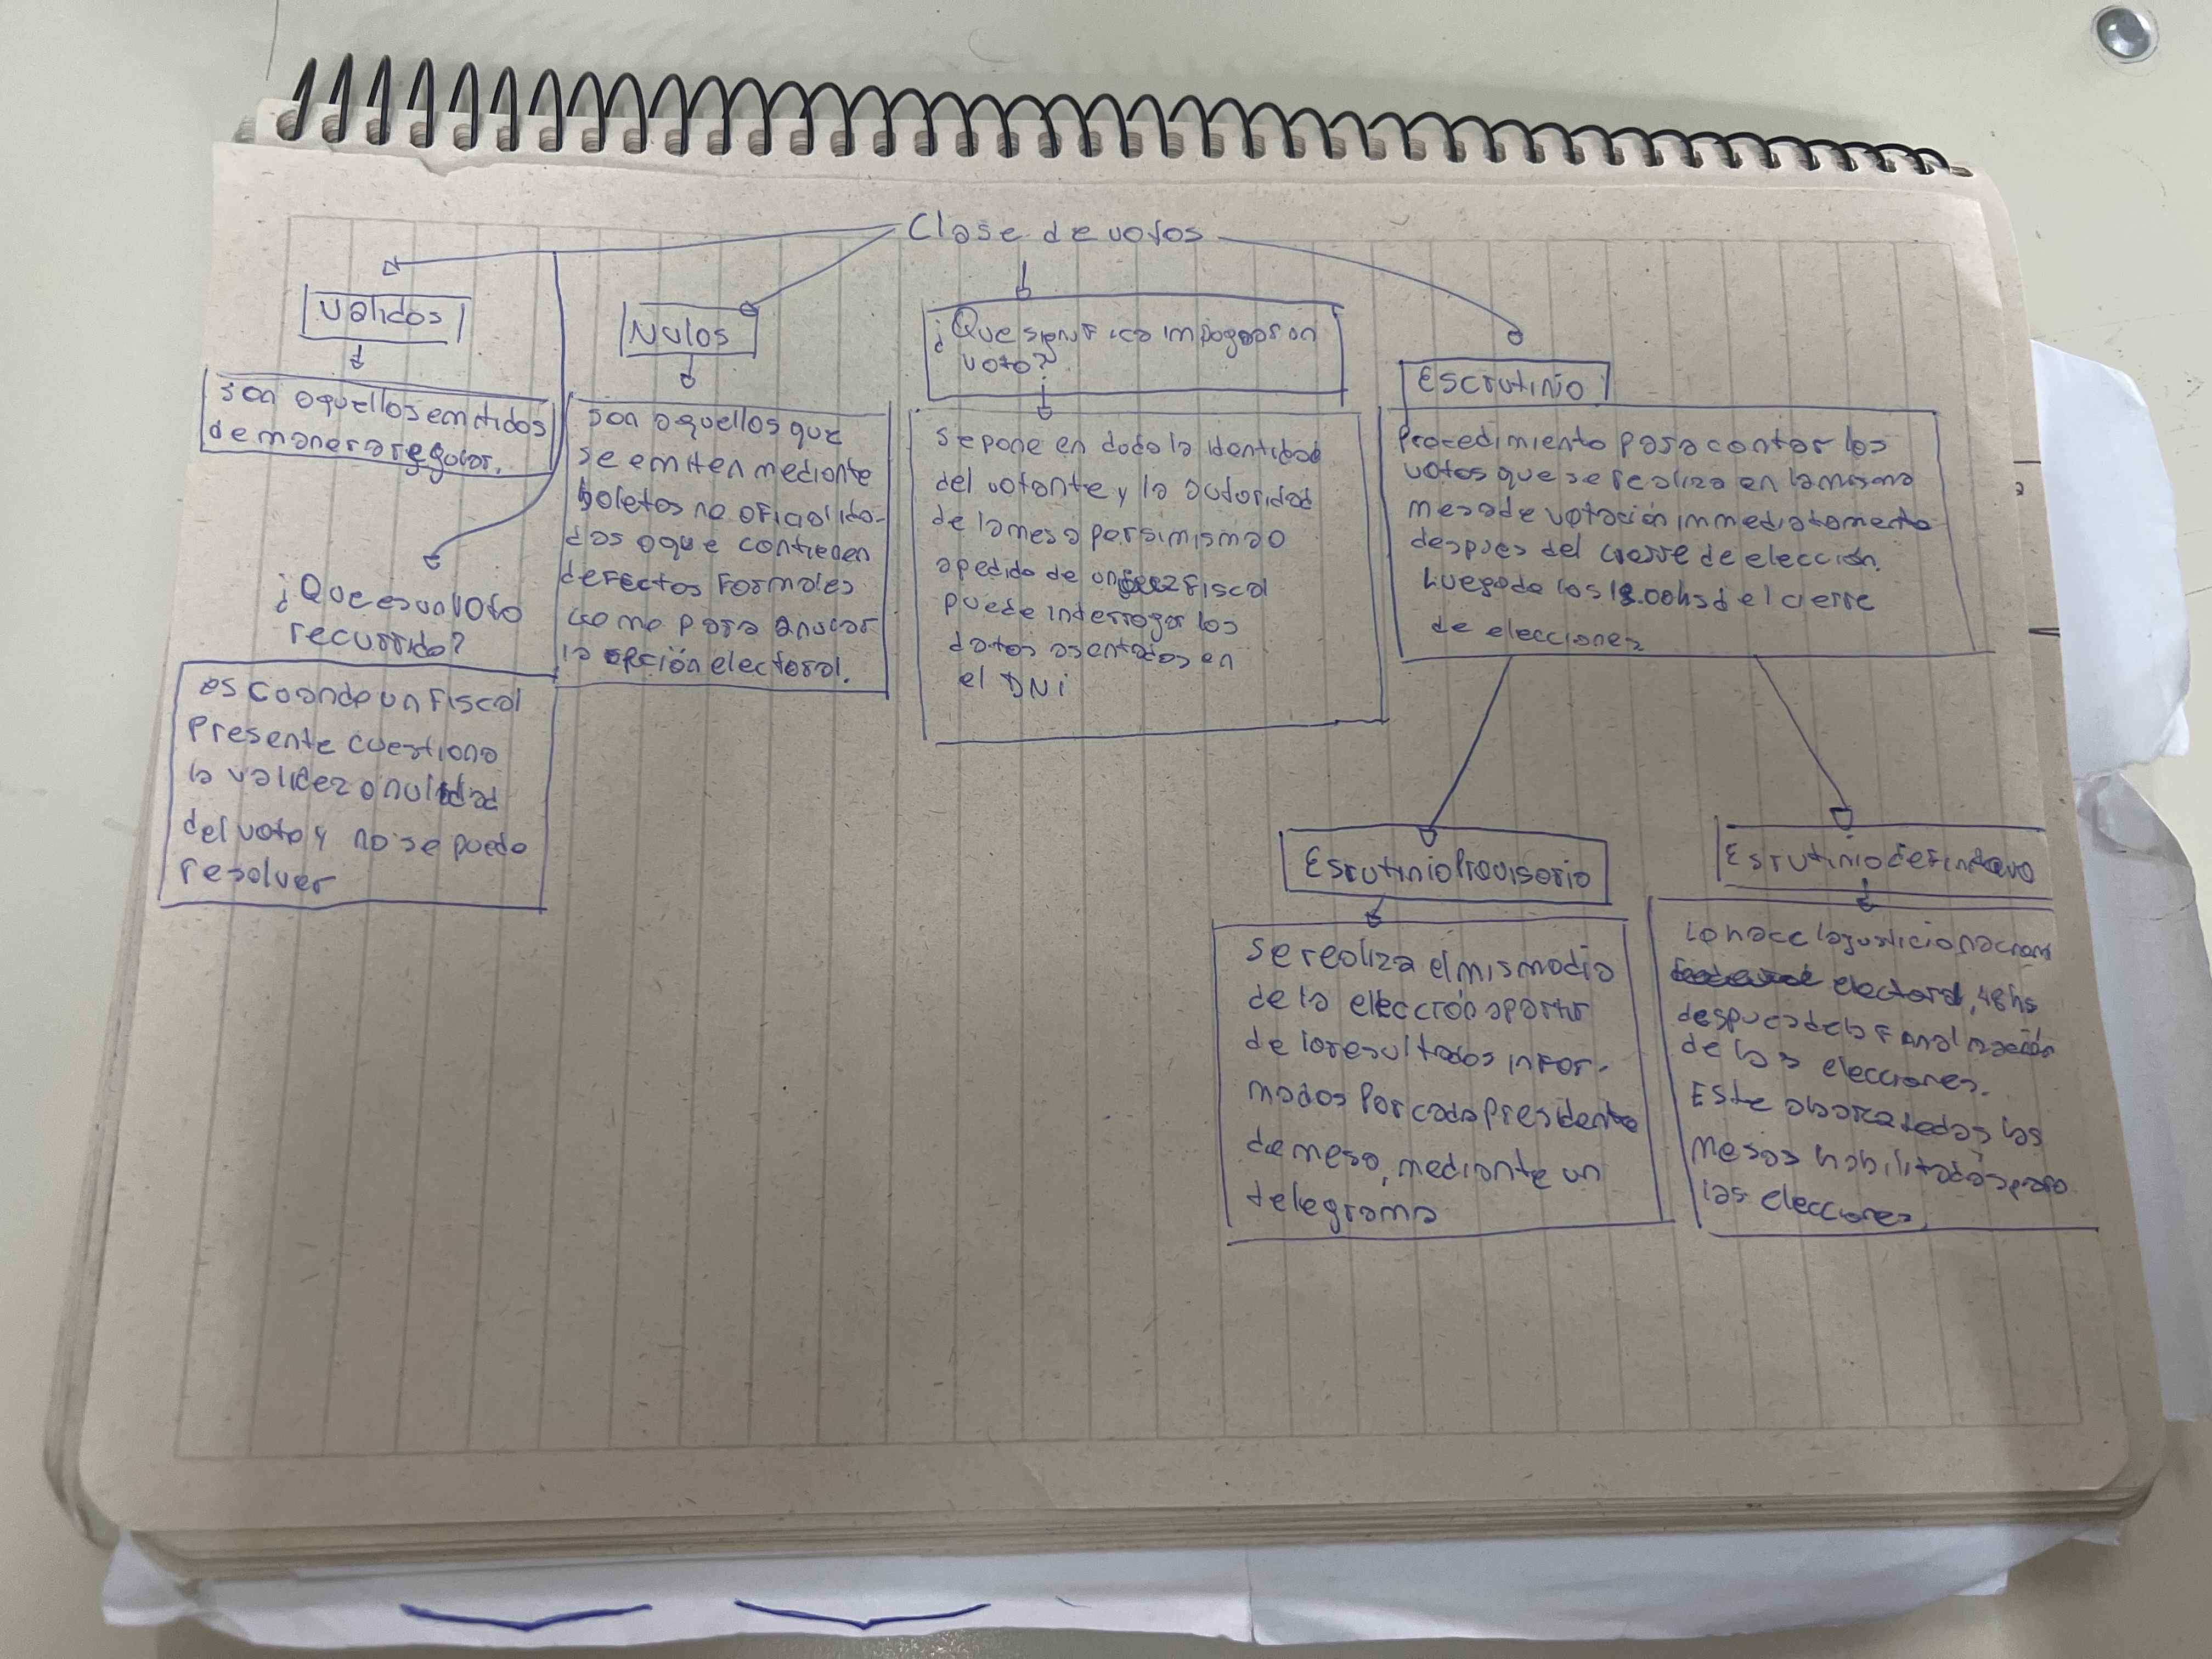 Clase de votos
Validos
son aquellos emitidos
de manera regular.
¿Que es un voto
recurrido?
es cuando un Fiscal
Presente cuestiona
la validez o nulidad
del voto y no se puede
resolver
Nulos
son aquellos que
se emiten mediante
boletos no oficialida-
das o que contienen
defectos Formales
como para anular
la opción electoral.
¿Que significa impugnar un
voto?
se pone en duda la identidad
del votante y la autoridad
de la mesa por si mismo o
a pedido de un Fiscal
puede interrogar los
datos asentados en
el DNi
Escrutinio
Procedimiento para contar los
votos que se realiza en la misma
mesa de votación immediatamente
despues del cierre de elección.
Luego de los 18.00hs el cierre
de elecciones
Esrutinio Provisorio
se realiza el mismo dia
de la elección a partir
de lo resultados infor-
mados Por cada Presidente
de mesa, mediante un
telegrama
Esrutinio definitivo
Lo hace la justicia nacional
electoral, 48hs
despues de la Finalización
de las elecciones.
Este abarca todas las
mesas habilitadas para
las elecciones.